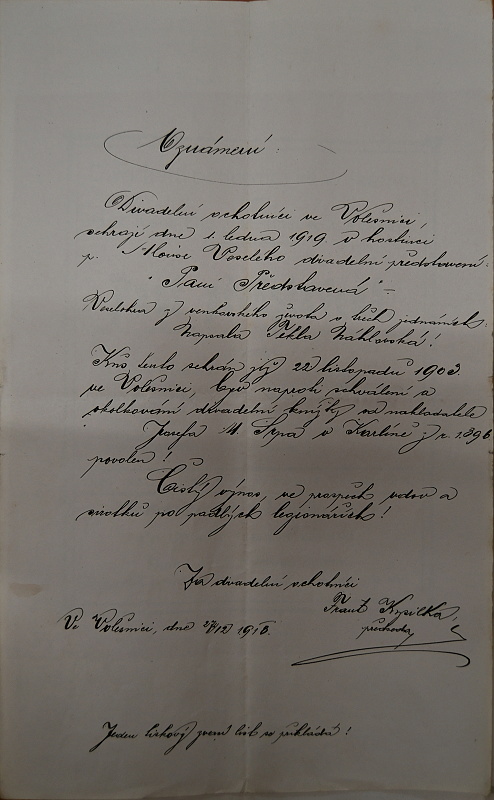 Oznámení:
Divadelní ochotníci ve Volešnici,
sehrají dne 1. ledna 1919 v hostinci
p. Veselého divadelní představení
"Paní Představená" –
Veselohra z venkovského života o třech jednáních.
Napsala Tekla Náhlovská!
Kus tento sehrán již 22 listopadu 1903.
ve Volešnici, byv naproti schválení a
okolkování divadelní knížky od nakladatele
Josefa M. Srpa v Karlíně z r. 1896
povolen!
Čistý výnos, ve prospěch vdov a
sirotků po padlých legionářích!
Za divadelní ochotníci
Frant Kysilka,
předseda
Ve Volešnici, dne 27/12 1918.
Jeden list se přikládá!